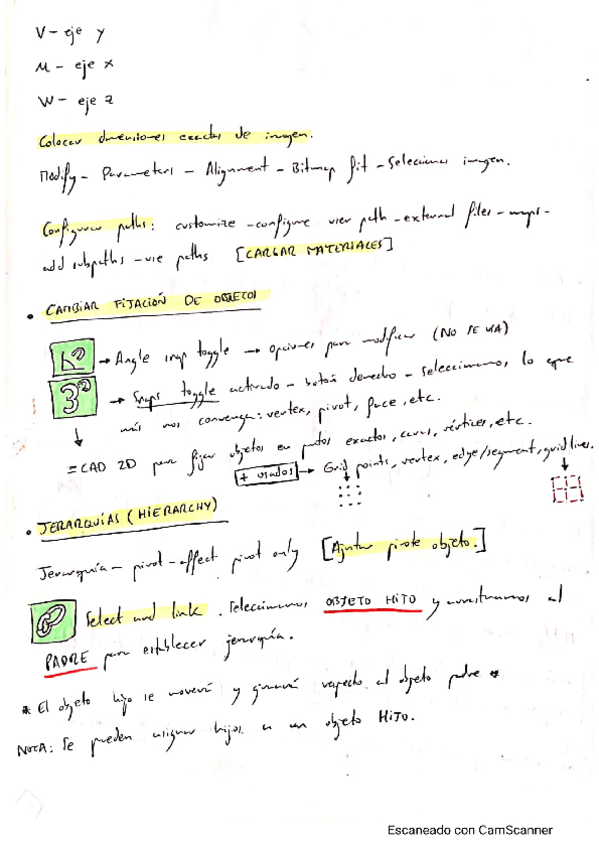 V - eje y
M - eje x
W - eje z
Colocar dimensiones exactas de imagen.
Modify - Parameters - Alignment - Bitmap fit - Seleccionar imagen.
Configurar paths: customize - configure user path - external files - maps -
add subpaths - use paths [CARGAR MATERIALES]
• CAMBIAR FIJACIÓN DE OBJETOS
→ Angle snap toggle → opciones para modificar (NO SE USA)
3 → Snaps toggle activado - botón derecho - seleccionamos lo que
más nos convenga: vertex, pivot, face, etc.
= CAD 2D para fijar objetos en puntos exactos, caras, vértices, etc.
+ usados → Grid points, vertex, edge/segment, grid lines.
• JERARQUÍAS (HIERARCHY)
Jerarquía - pivot - affect pivot only [Ajustar pivote objeto.]
Select and link. Seleccionamos OBJETO HIJO y arrastramos al
PADRE para establecer jerarquía.
* El objeto hijo se moverá y girará respecto al objeto padre *
NOTA: Se pueden asignar hijos a un objeto HIJO.
Escaneado con CamScanner